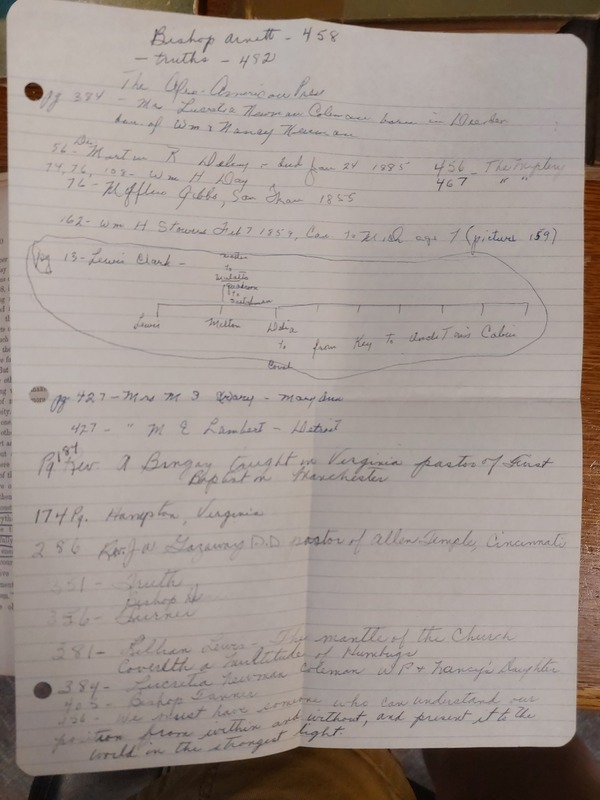 Bishop Arnett - 458
- truths - 492
The Afro-American Press
pg 384 - Mrs Lucretia Newman Coleman born in Dresden
dau of Wm & Nancy Newman
Dr.
86 - Martin R Delany - died Jan 24 1885 456 - The Mystery
74, 76, 108 - Wm H Day 467 " "
76 - Mifflin Gibbs, San Fran 1855
162 - Wm H Stowers Feb 7 1859, Can to Mich age 7 (picture 159)
Pg 13 - Lewis Clark -
to
to
Lewis Milton Delia
to from Key to Uncle Tom's Cabin
pg 427 - Mrs M Cary - Mary Ann
427 - " M E Lambert - Detroit
Pg 184 Rev. A Bingay taught in Virginia pastor of First
Baptist in Manchester
174 Pg. Hampton, Virginia
286 Rev. J W Gazaway D.D pastor of Allen Temple, Cincinnati
351 - Truth
Bishop H
356 - Turner
381 - Lillian Lewis - The mantle of the Church
Covereth a Multitude of Humbugs
384 - Lucretia Newman Coleman W P & Nancy's Daughter
402 - Bishop Tanner
436 - We must have someone who can understand our
position from within and without, and present it to the
world in the strongest light